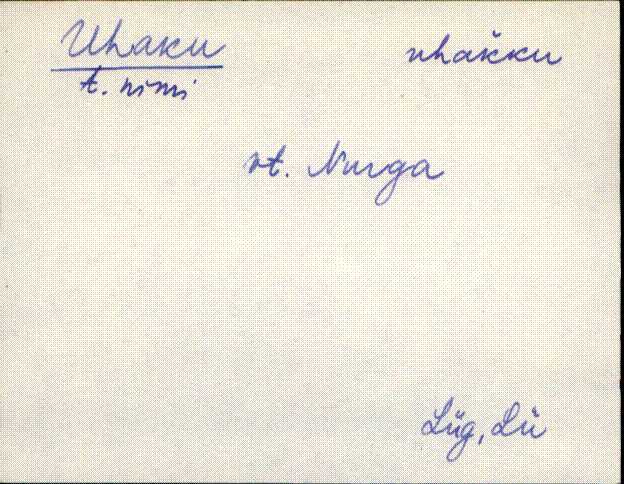 Uhaku uhaǩku
t. nimi
vt. Nurga
Lüg, Lü